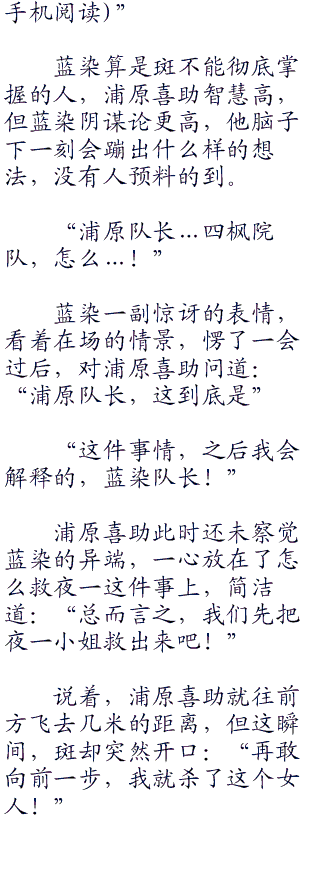 手机阅读)”
蓝染算是斑不能彻底掌
握的人，浦原喜助智慧高，
但蓝染阴谋论更高，他脑子
下一刻会蹦出什么样的想
法，没有人预料的到。
“浦原队长…四枫院
队，怎么…！”
蓝染一副惊讶的表情，
看着在场的情景，愣了一会
过后，对浦原喜助问道：
“浦原队长，这到底是”
“这件事情，之后我会
解释的，蓝染队长！”
浦原喜助此时还未察觉
蓝染的异端，一心放在了怎
么救夜一这件事上，简洁
道：“总而言之，我们先把
夜一小姐救出来吧！”
说着，浦原喜助就往前
方飞去几米的距离，但这瞬
间，斑却突然开口：“再敢
向前一步，我就杀了这个女
人！”